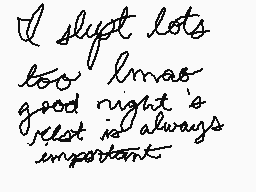 I slept lots
too lmao
good night's
rest is always
important